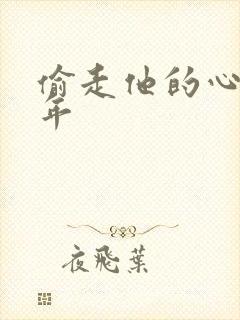 偷走他的心
年
夜飛葉